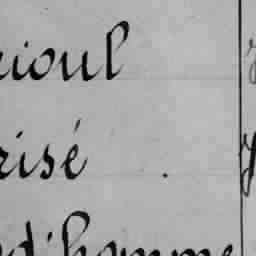 rioul
risé
d'homme